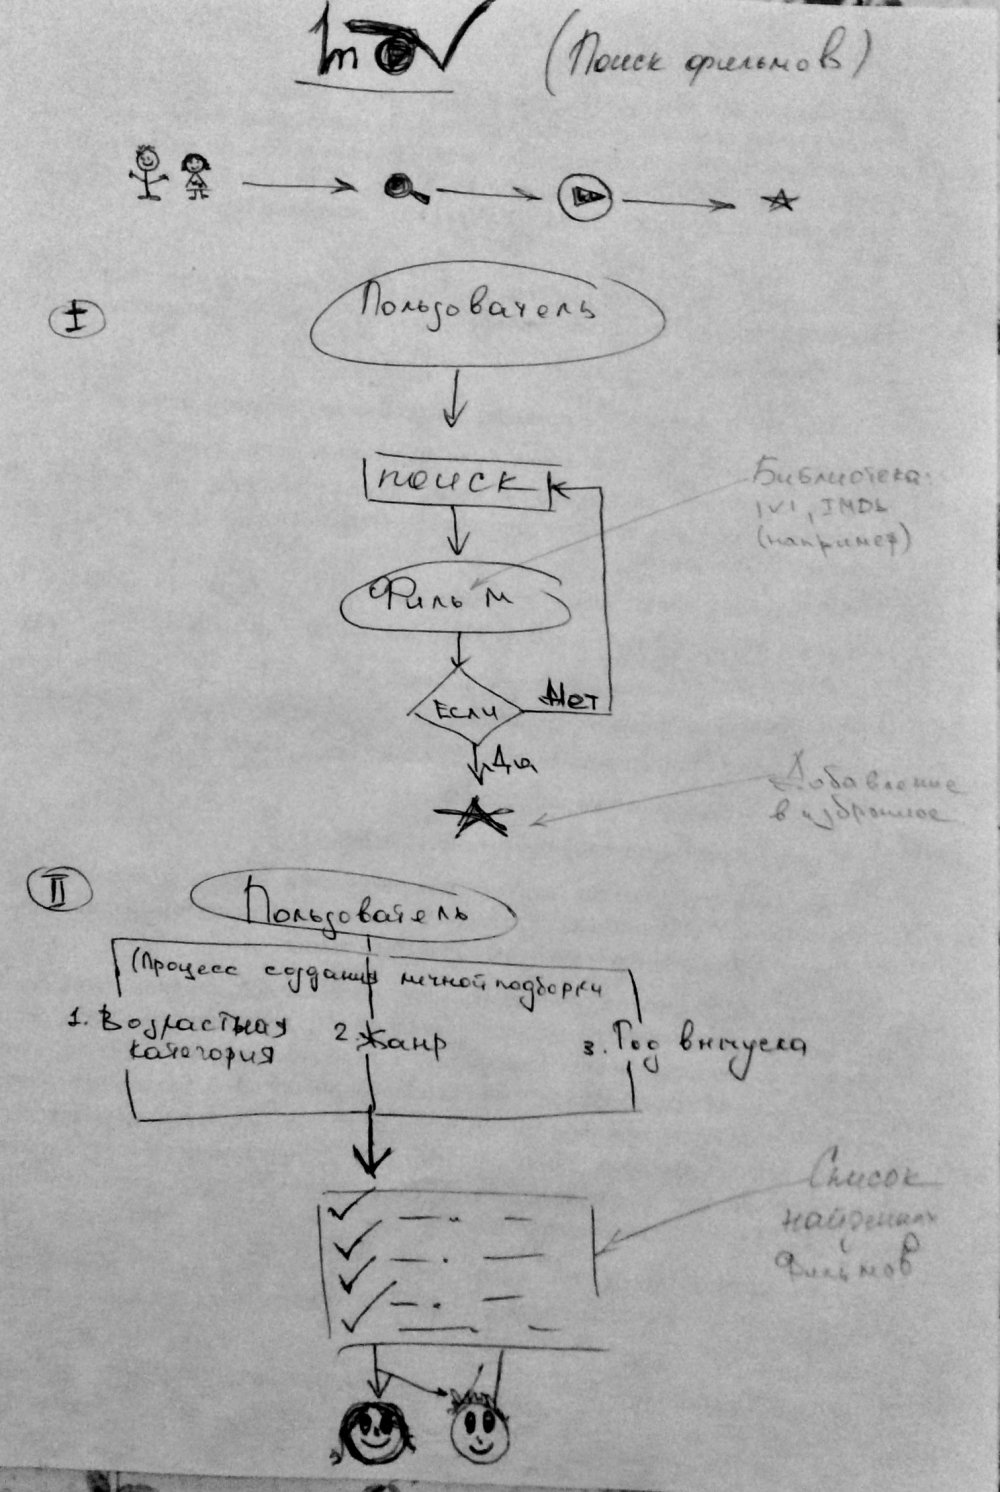 mov
(Поиск фильмов)
I
Пользователь
поиск
Библиотека:
ivi, IMDb
(например)
Фильм
Если
Нет
Да
Добавление
в избранное
II
Пользователь
(Процесс создания личной подборки
1. Возрастная
категория
2. Жанр
3. Год выпуска
Список
найденных
Фильмов